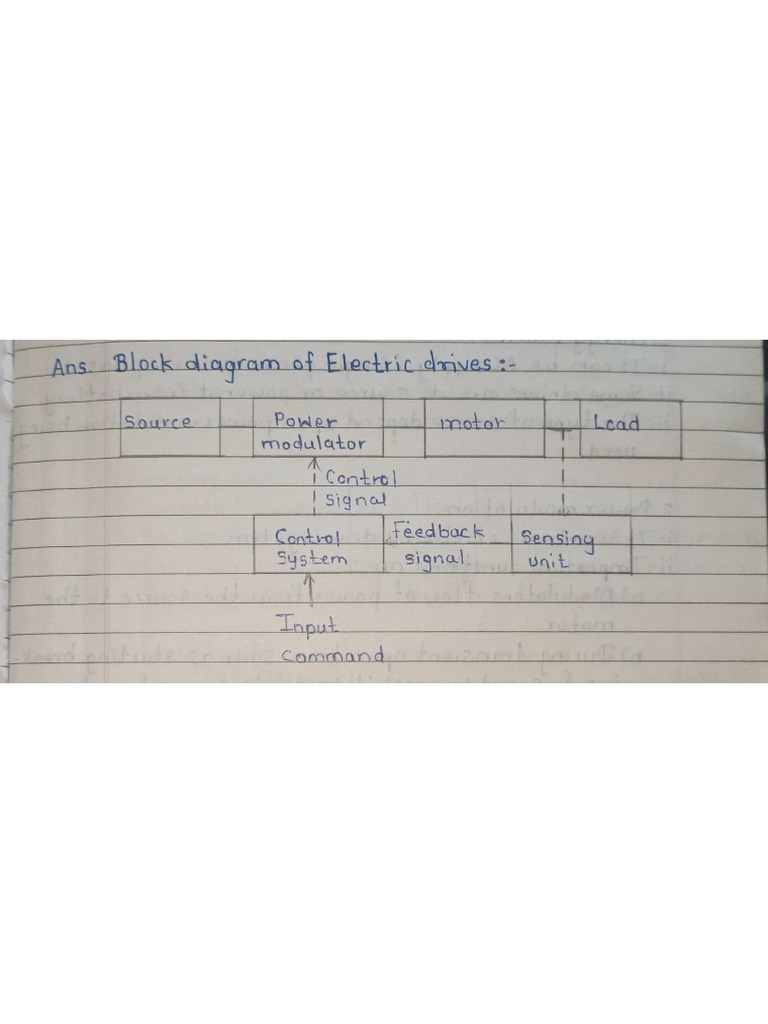 Ans. Block diagram of Electric drives:-
Source
Power
modulator
motor
Load
Control
signal
Control
system
Feedback
signal
Sensing
unit
Input
command